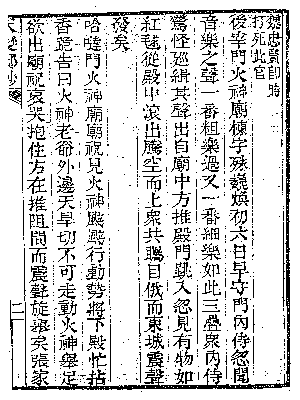 魏忠賢卽時
打死此官
後宰門火神廟棟宇殊巍煥初六日早守門內侍忽聞
音樂之聲一番粗樂過又一番細樂如此三疊衆內侍
驚怪巡緝其聲出自廟中方推殿門跳入忽見有物如
紅毬從殿中滾出騰空而上衆共矚目俄而東城震聲
發矣
哈噠門火神廟廟祝見火神颯颯行動勢將下殿忙拈
香跪告曰火神老爺外邊天旱切不可走動火神舉足
欲出廟祝哀哭抱住方在推阻間而震聲旋舉矣張家
二